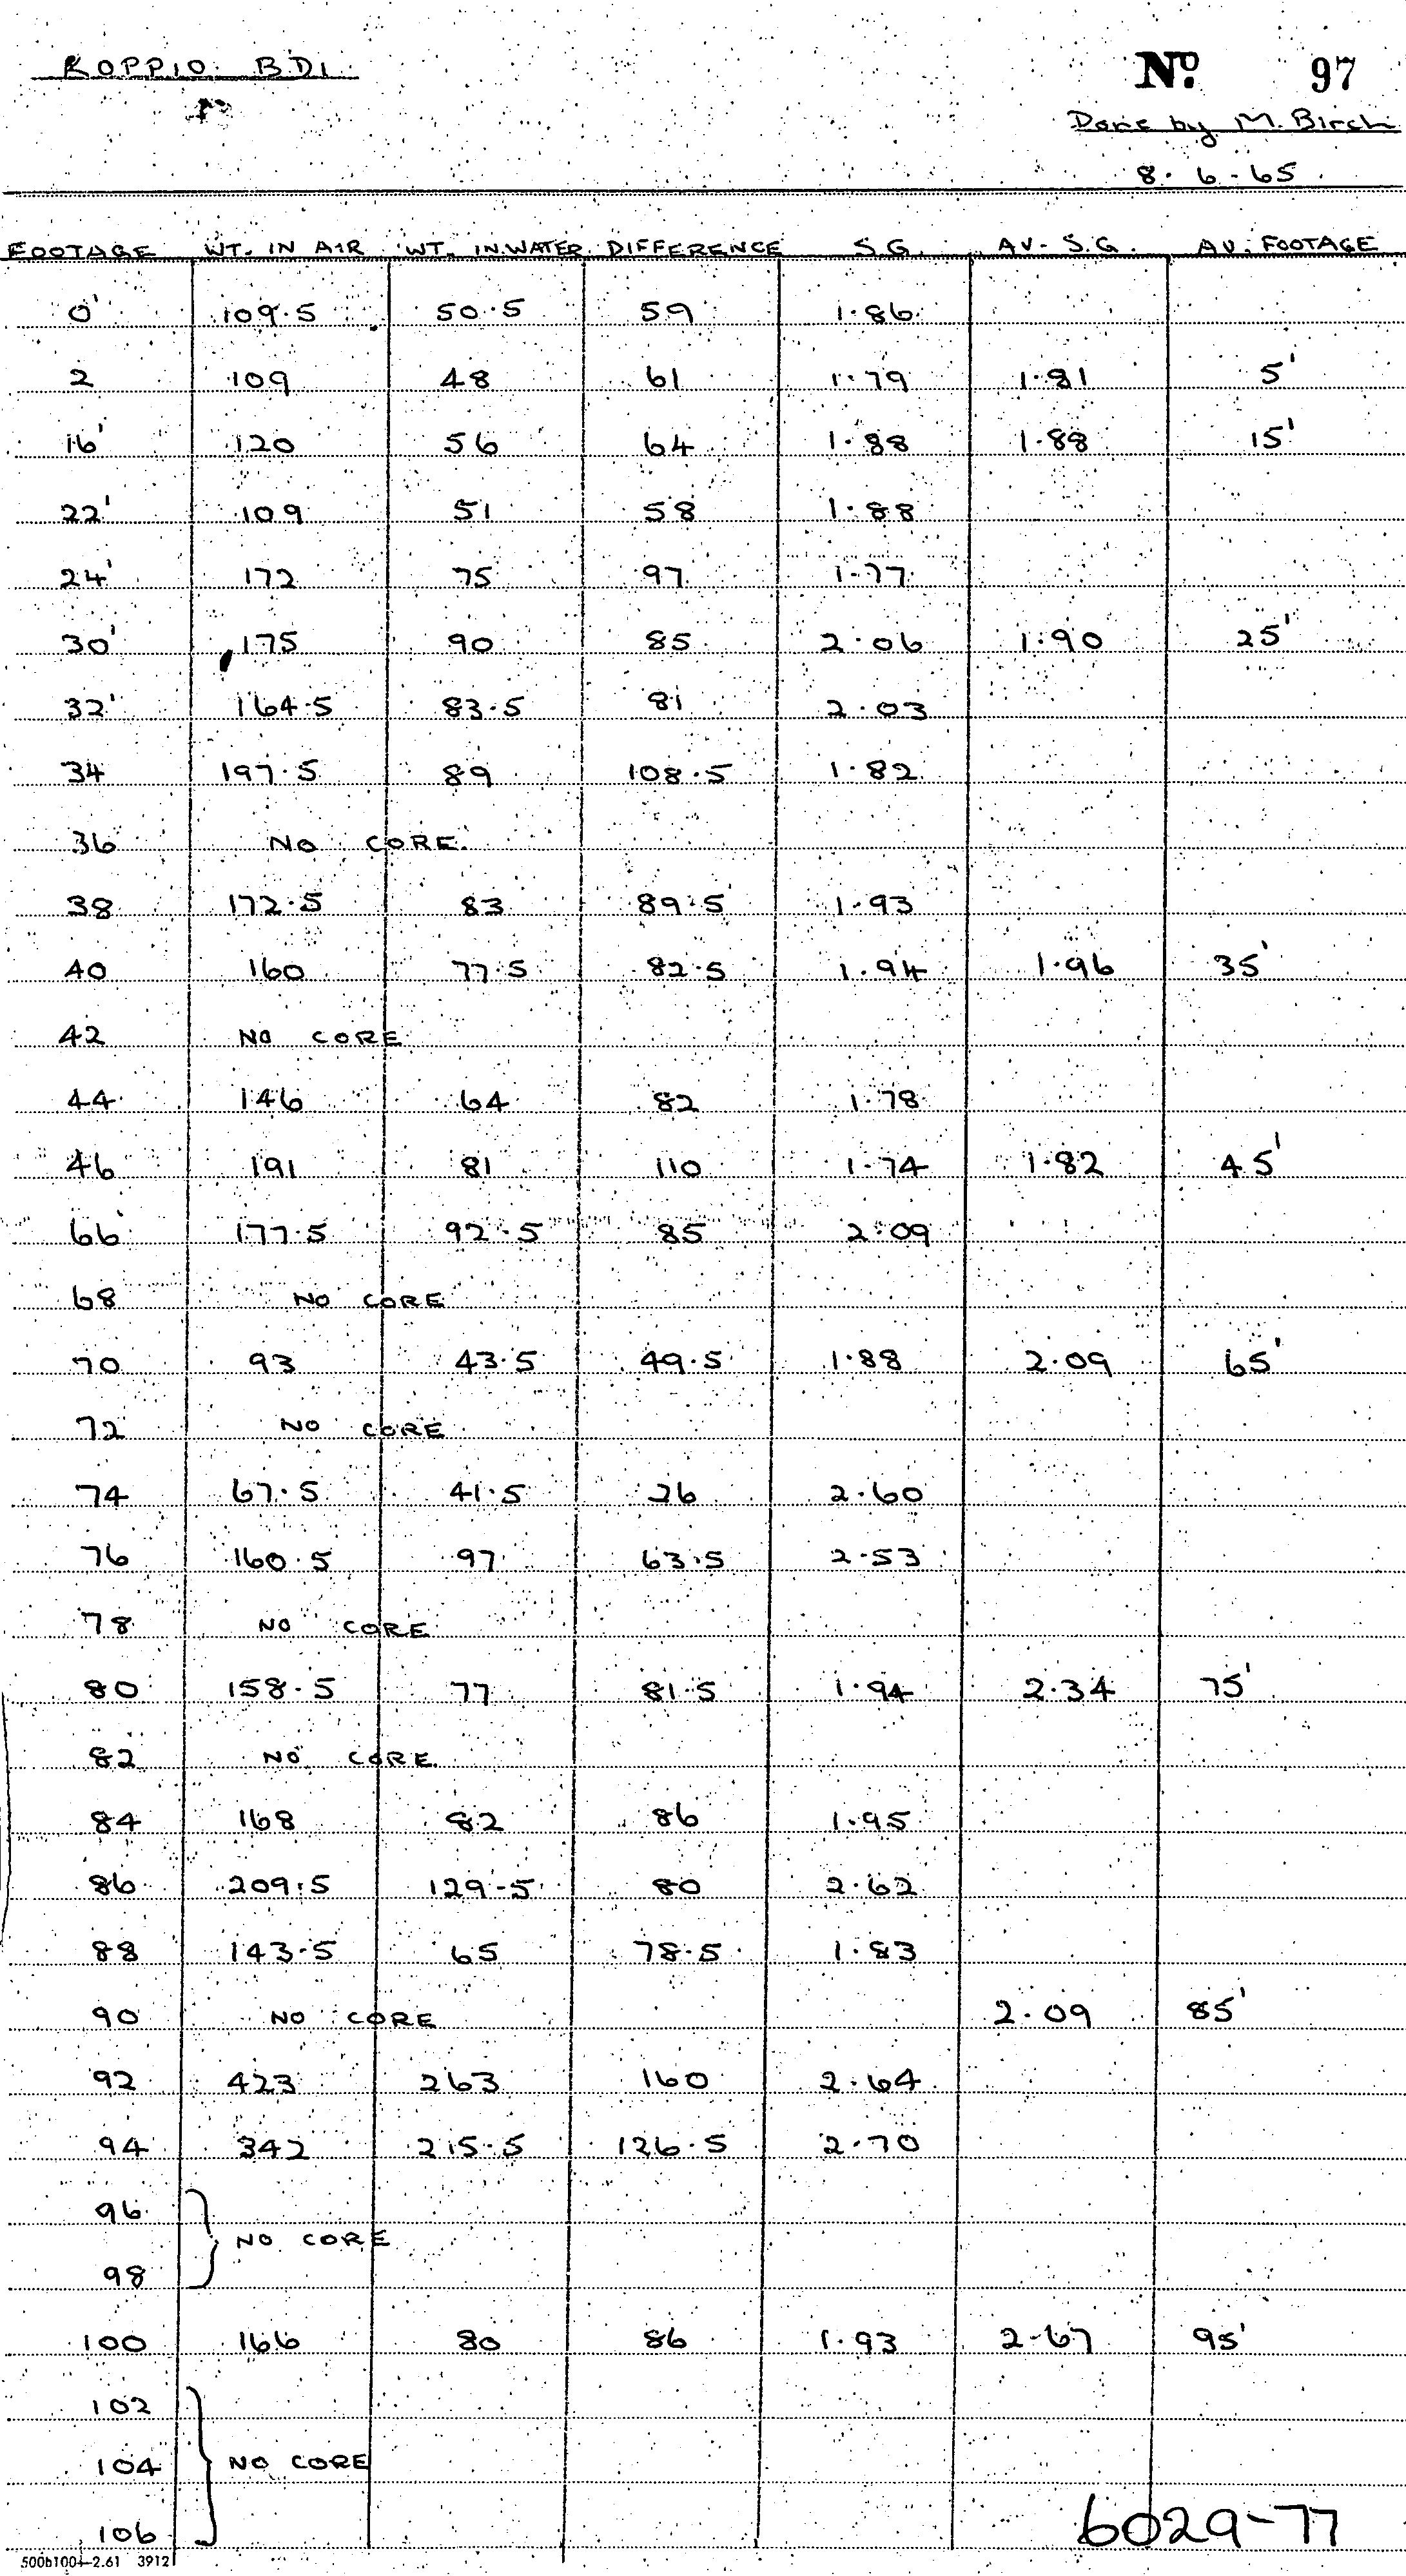 KOPPIO BD1
No. 97
Done by M. Birch
8.6.65
FOOTAGE WT. IN AIR WT. IN WATER DIFFERENCE S.G. AV. S.G. AV. FOOTAGE
0' 109.5 50.5 59 1.86
2 109 48 61 1.79 1.81 5'
16' 120 56 64 1.88 1.88 15'
22' 109 51 58 1.88
24' 172 75 97 1.77
30' 175 90 85 2.06 1.90 25'
32' 164.5 83.5 81 2.03
34 197.5 89 108.5 1.82
36 NO CORE.
38 172.5 83 89.5 1.93
40 160 77.5 82.5 1.94 1.96 35'
42 NO CORE
44 146 64 82 1.78
46 191 81 110 1.74 1.82 45'
66' 177.5 92.5 85 2.09
68 NO CORE
70 93 43.5 49.5 1.88 2.09 65'
72 NO CORE
74 67.5 41.5 26 2.60
76 160.5 97 63.5 2.53
78 NO CORE
80 158.5 77 81.5 1.94 2.34 75'
82 NO CORE
84 168 82 86 1.95
86 209.5 129.5 80 2.62
88 143.5 65 78.5 1.83
90 NO CORE 2.09 85'
92 423 263 160 2.64
94 342 215.5 126.5 2.70
96
NO CORE
98
100 166 80 86 1.93 2.67 95'
102
104 NO CORE
106
6029-77
500b100-2.61 3912